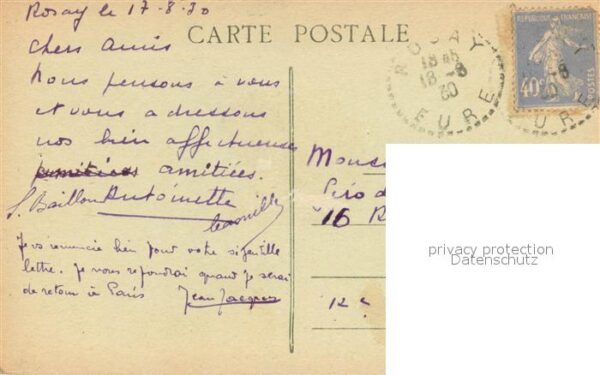 Rosay le 17-8-30
Chers Amis
CARTE POSTALE
Nous pensons à vous
et vous adressons
nos bien affectueuses
amitiées.
Baillon Antoinette
Je vs remercie bien pour votre si gentille
lettre. Je vous repondrai quand je serai
de retour à Paris Jean Jacques
ROSAY
18 45
18 -8
30
EURE
REPUBLIQUE FRANÇAISE
40c
POSTES
-8
30
EURE
16 R
privacy protection
Datenschutz